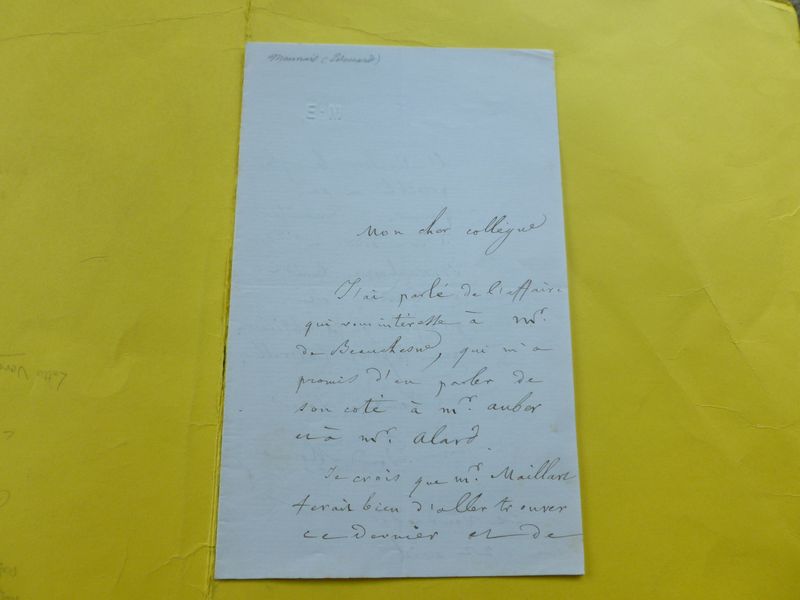 Monnais (Edouard)
Mon cher collègue
J'ai parlé de l'affaire
qui vous intéresse à Mr.
de Beauchesne, qui m'a
promis d'en parler de
son coté à Mr. Auber
et à Mr. Alard.
Je crois que Mr. Maillart
ferait bien d'aller trouver
ce dernier et de